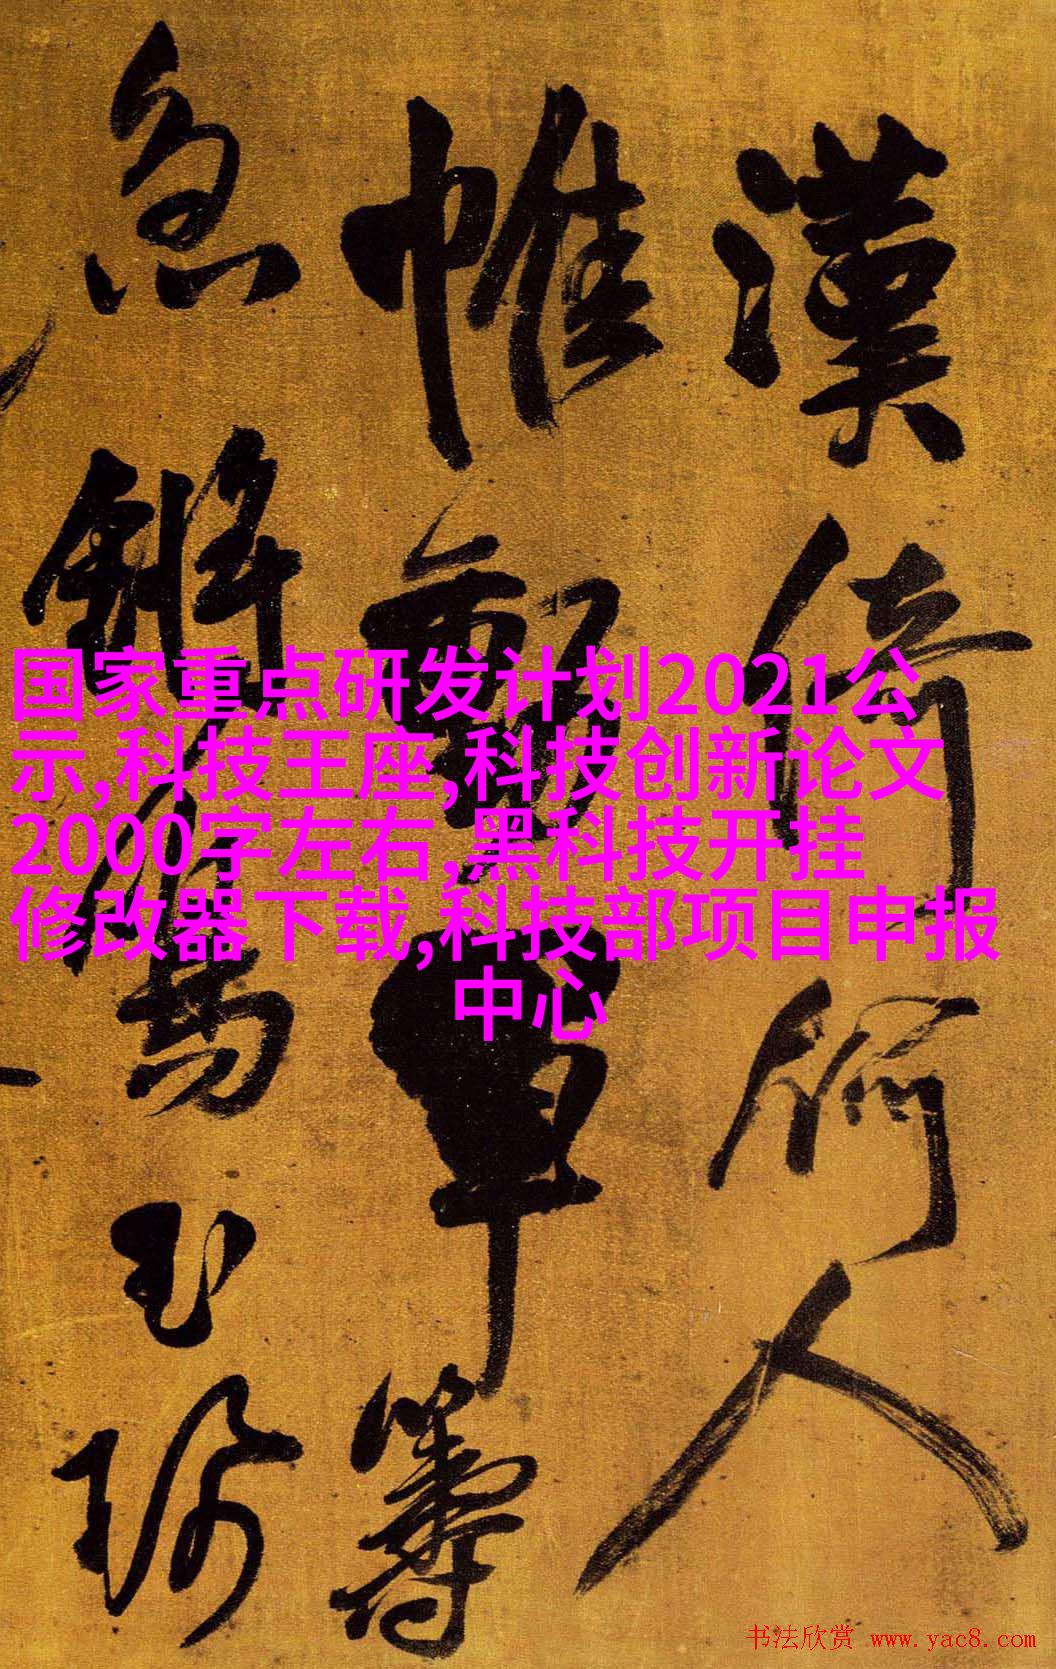 国家重点研发计划2021公
示,科技王座,科技创新论文
2000字左右,黑科技开挂
修改器下载,科技部项目申报
中心
漢倚何人
帷軍籌
急玉
书法欣赏 www.yac8.com